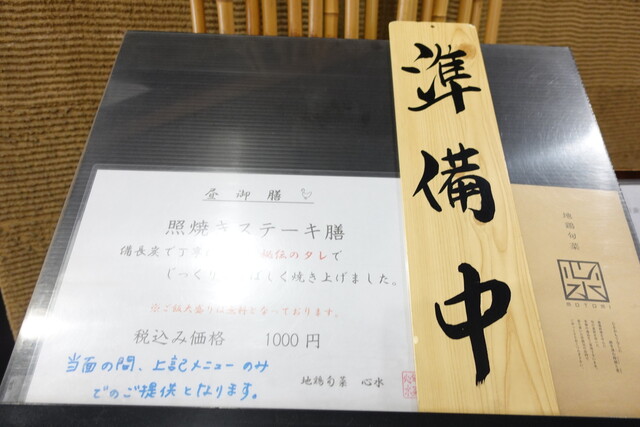 昼御膳
照焼きステーキ膳
備長炭で丁寧に 秘伝のタレで
じっくり ばしく焼き上げました。
※ご飯大盛りは無料となっております。
税込み価格 1000円
当面の間、上記メニューのみ
でのご提供となります。
地鶏旬菜 心水
準備中
地鶏旬菜
心水
MOTOMI